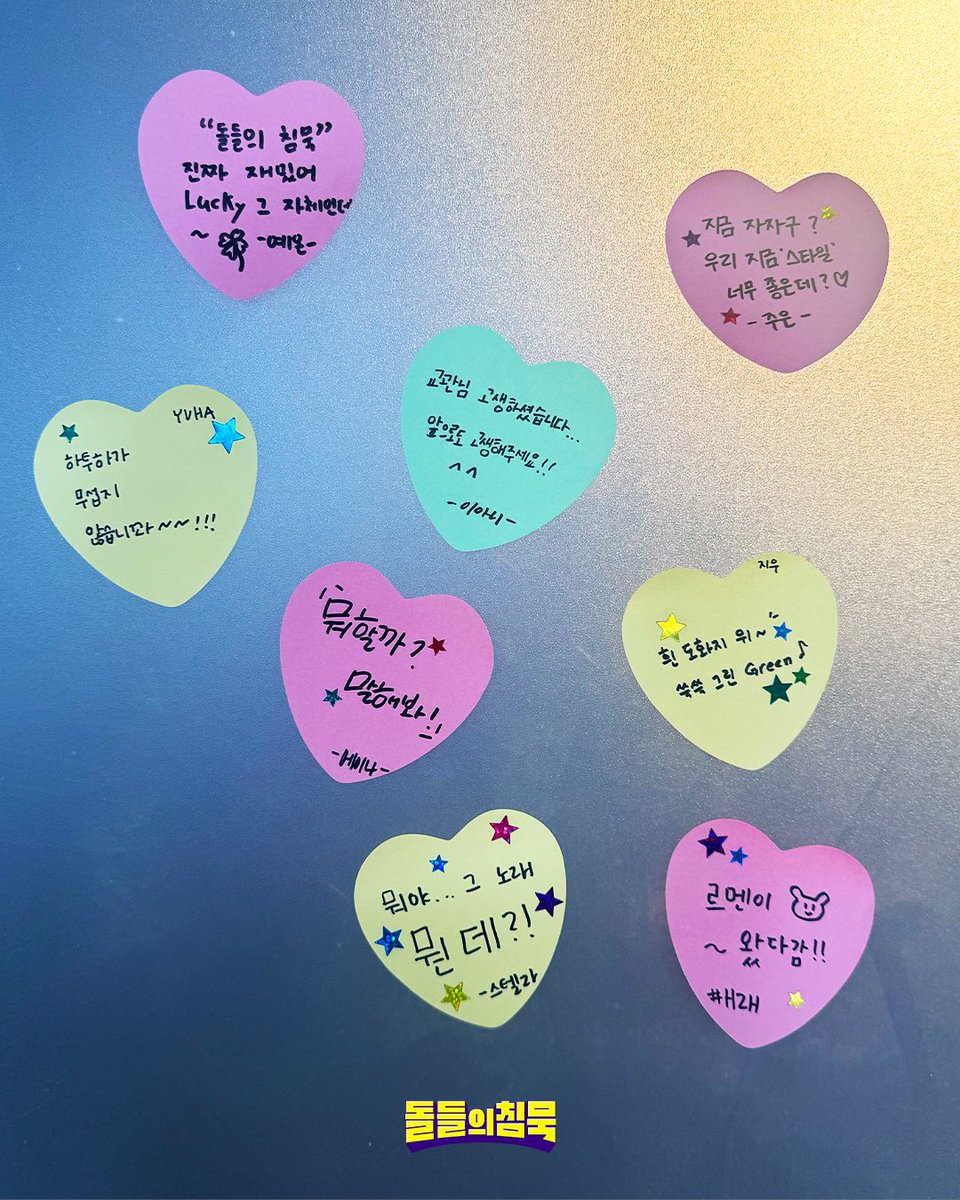 “돌들의 침묵”
진짜 재밌어
Lucky 그 자체인데
~ -예온-
지금 자자구?
우리 지금 '스타일'
너무 좋은데?♡
-주은-
교관님 고생하셨습니다...
앞으로도 고생해주세요!!
^^
-이아니-
YUHA
하투하가
무섭지
않습니꽈~~!!!
뭐할까?
말해봐!!
-에이나-
지우
흰 도화지 위~
쓱쓱 그린 Green♪
뭐야... 그 노래
뭔데?!
-스텔라
르멘이
~ 왔다감!!
#H2H
돌들의침묵